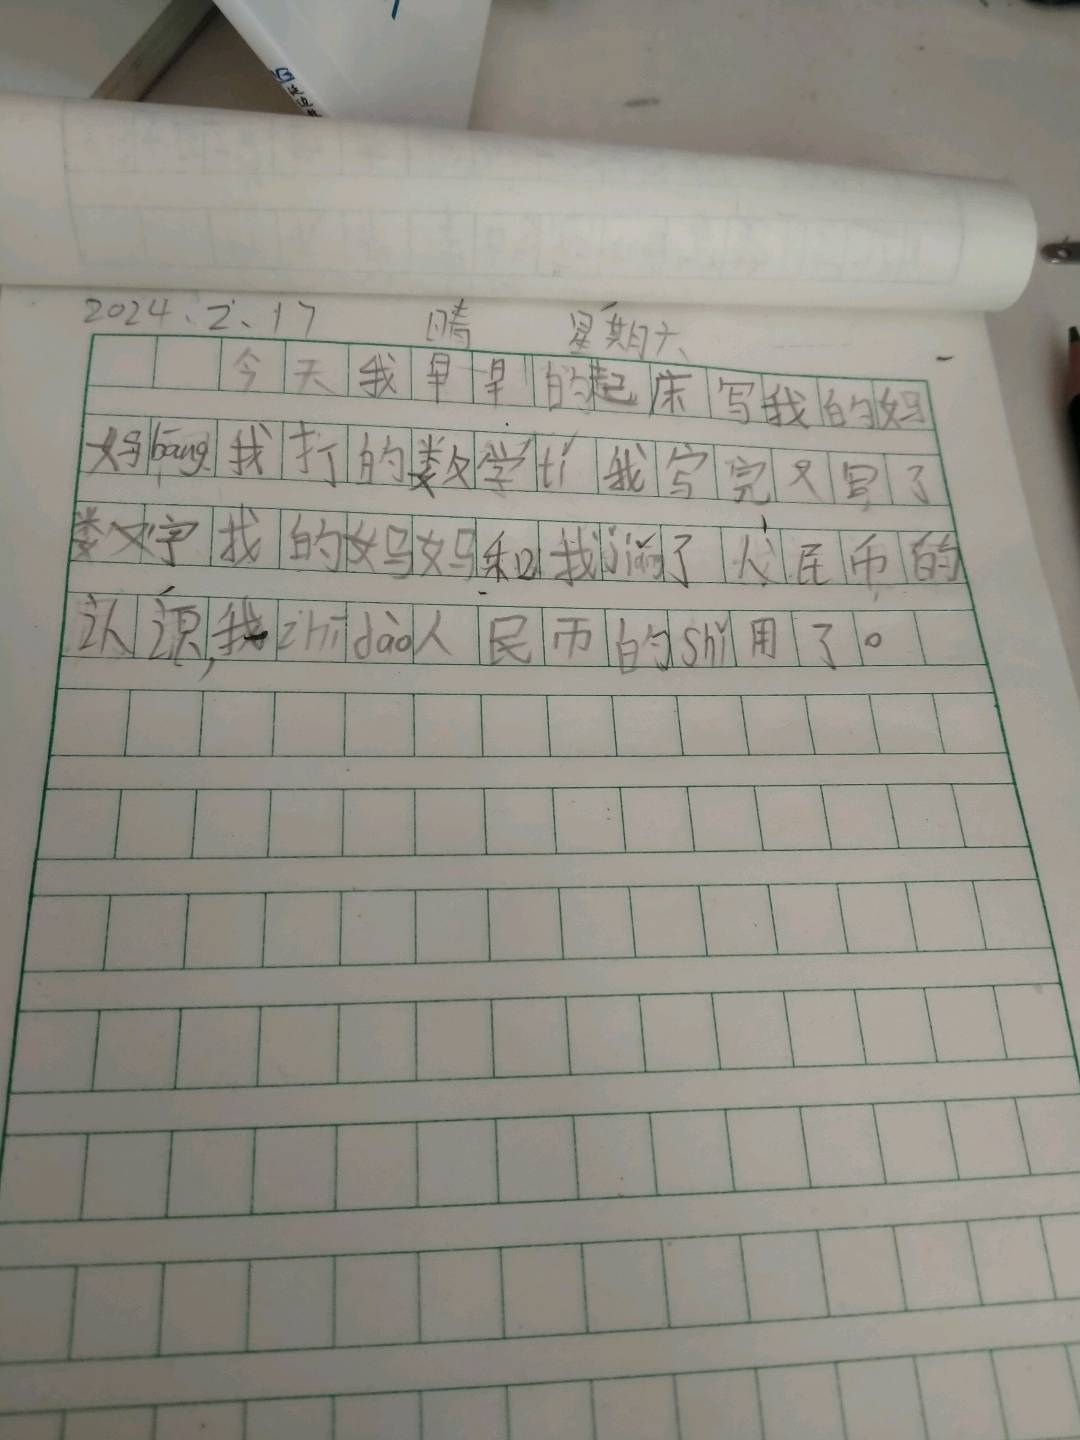 2024.2.17 晴 星期六
今天我早早的起床写我的妈
妈bāng我打的数学tí我写完又写了
数字我的妈妈和我jiǎng了人民币的
认识,我zhīdào人民币的shǐ用了。